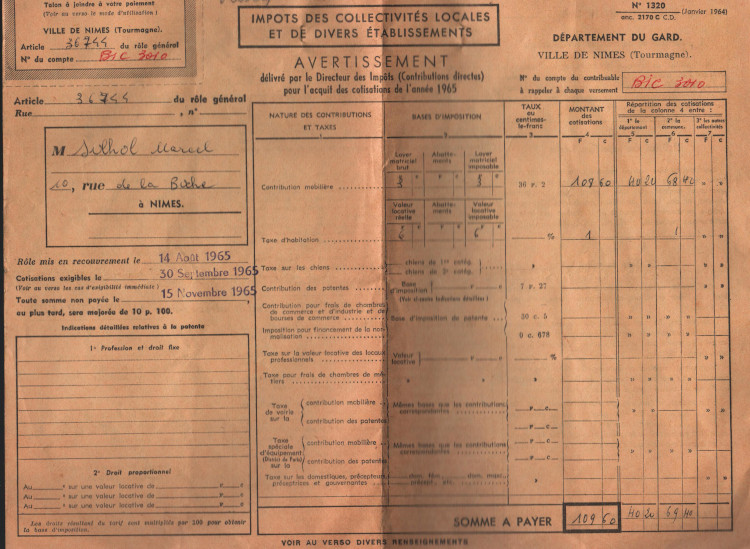 Talon à joindre à votre paiement
(Voir au verso le mode d'utilisation)
VILLE DE NIMES (Tourmagne).
Article 36744 du rôle général
N° du compte BIC 3010
IMPOTS DES COLLECTIVITÉS LOCALES
ET DE DIVERS ÉTABLISSEMENTS
AVERTISSEMENT
délivré par le Directeur des Impôts (Contributions directes)
pour l'acquit des cotisations de l'année 1965
N° 1320
anc. 2170 C C.D. (Janvier 1964)
DÉPARTEMENT DU GARD.
VILLE DE NIMES (Tourmagne).
N° du compte du contribuable
à rappeler à chaque versement
BIC 3010
Article 36744 du rôle général
Rue , n°
M Marcel
10, rue de la Biche
à NIMES.
Rôle mis en recouvrement le 14 Août 1965
Cotisations exigibles le 30 Septembre 1965
(Voir au verso les cas d'exigibilité immédiate)
Toute somme non payée le 15 Novembre 1965
au plus tard, sera majorée de 10 p. 100.
Indications détaillées relatives à la patente
1° Profession et droit fixe
2° Droit proportionnel
Au " sur une valeur locative de F c
Au " sur une valeur locative de F c
Au " sur une valeur locative de F c
Les droits résultant du tarif sont multipliés par 200 pour obtenir
la base d'imposition.
NATURE DES CONTRIBUTIONS
ET TAXES
BASES D'IMPOSITION
TAUX
ou
centimes-
le-franc
MONTANT
des
cotisations
Répartition des cotisations
de la colonne 4 entre :
1° le département
2° la commune.
3° les autres collectivités
4 5 6 7
F c F c F c F c
Loyer matriciel brut
Abatte-ments
Loyer matriciel imposable
Contribution mobilière 3 3 36 F. 2 109 60 40 20 68 40 " "
Valeur locative réelle
Abatte-ments
Valeur locative imposable
Taxe d'habitation 6 6 % 1 1 " "
Taxe sur les chiens
chiens de 1re catég.
chiens de 2e catég.
Contribution des patentes Base d'imposition 7 F. 27
(Voir ci-contre indications détaillées)
Contribution pour frais de chambres
de commerce et d'industrie et de
bourses de commerce Base d'imposition de patente 30 c. 5
Imposition pour financement de la nor-
malisation 0 c. 678
Taxe sur la valeur locative des locaux
professionnels Valeur locative %
Taxe pour frais de chambres de mé-
tiers
Taxe de voirie sur la
contribution mobilière
contribution des patentes
Mêmes bases que les contributions
correspondantes
Taxe spéciale d'équipement
(District de Paris)
sur la
contribution mobilière
contribution des patentes
Mêmes bases que les contributions
correspondantes
Taxe sur les domestiques, précepteurs,
préceptrices et gouvernantes
SOMME A PAYER 109 60 40 20 69 40 " "
VOIR AU VERSO DIVERS RENSEIGNEMENTS